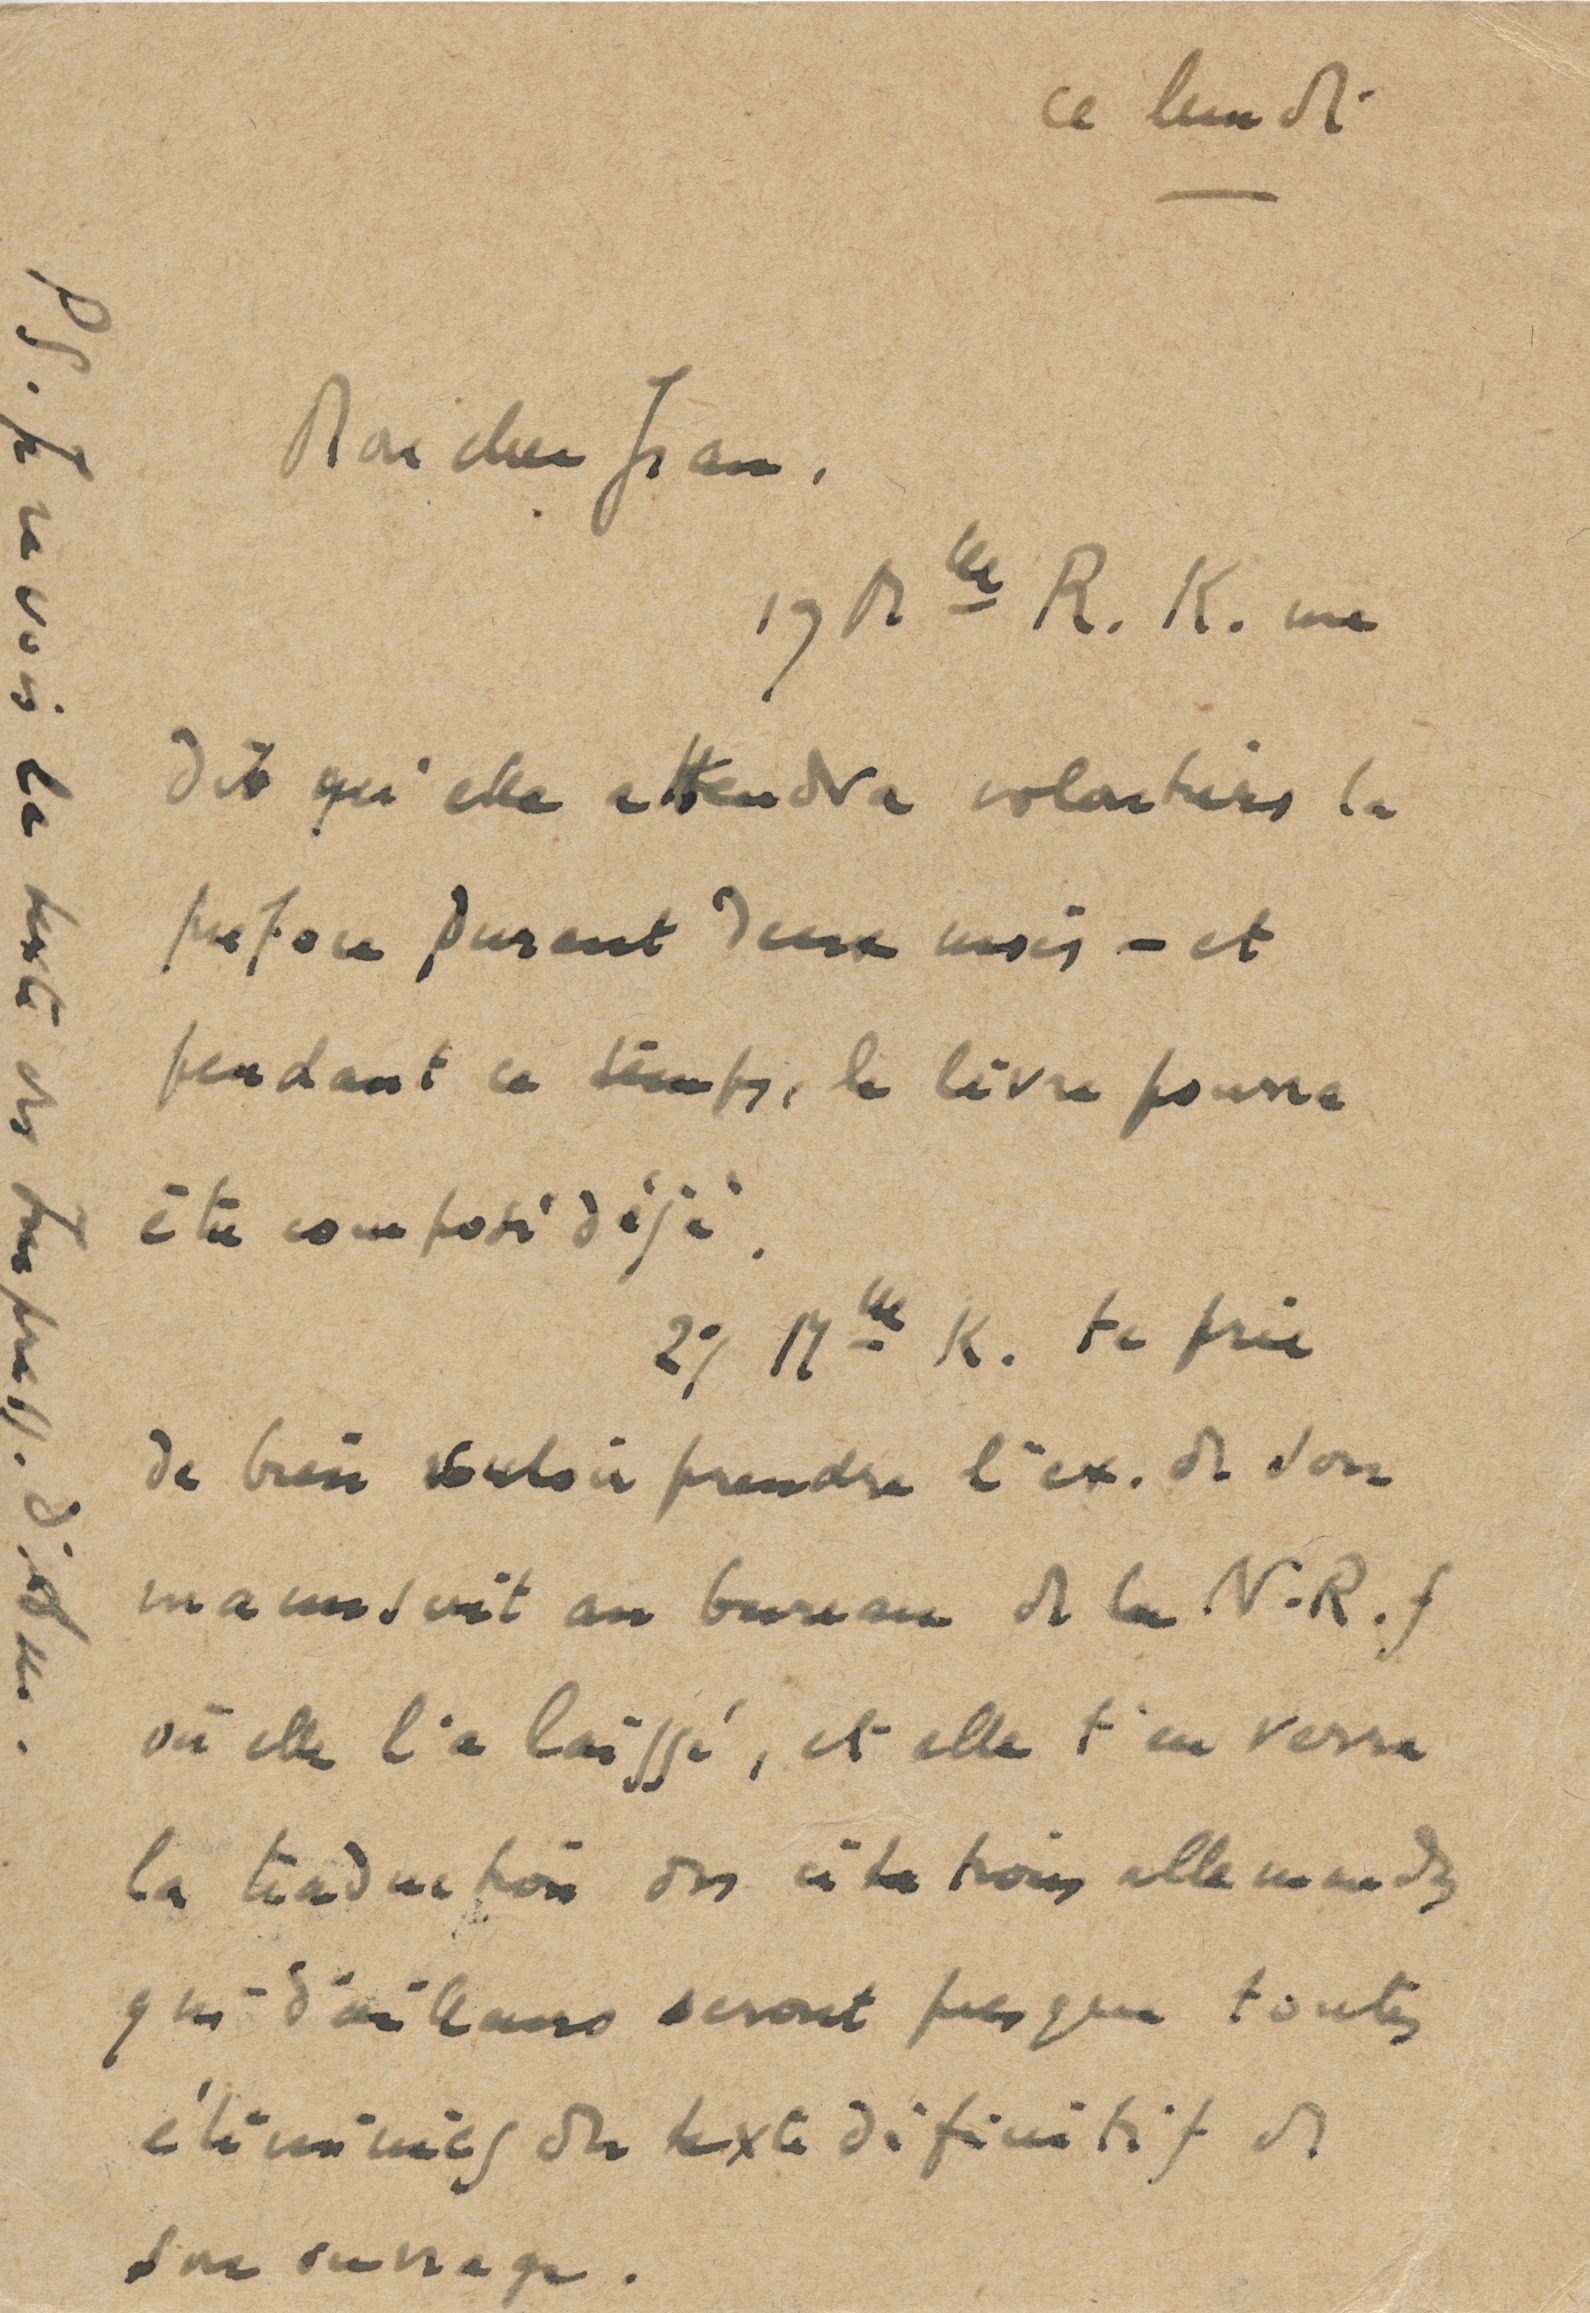 ce lundi
Mon cher Jean,
1°/ Mlle R. K. me
dit qu'elle attendra volontiers la
préface durant deux mois - et
pendant ce temps, le livre pourra
être composé déjà.
2°/ Mlle K. te prie
de bien vouloir prendre l'ex. de son
manuscrit au bureau de la N.R.f
où elle l'a laissé, et elle t'enverra
la traduction des citations allemandes
qui d'ailleurs seront presque toutes
éliminées du texte définitif de
son ouvrage.
PS. Je revois le texte des